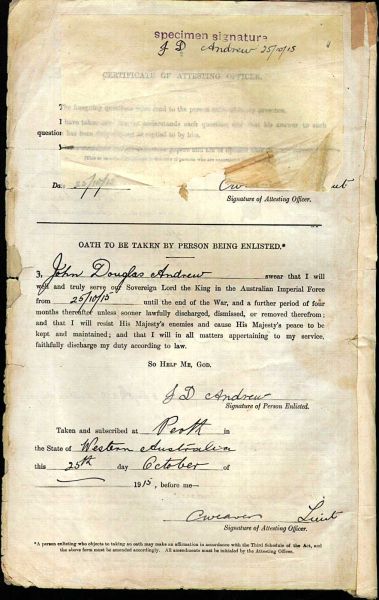 specimen signature
J D Andrew 25/10/15
CERTIFICATE OF ATTESTING OFFICER.
The foregoing questions were read to the person in my presence.
I have taken care that he understands each question, and that his answer to each
question has been duly entered as replied to by him.
Date 25/10/15
Signature of Attesting Officer.
OATH TO BE TAKEN BY PERSON BEING ENLISTED.*
I, John Douglas Andrew swear that I will
well and truly serve our Sovereign Lord the King in the Australian Imperial Force
from 25/10/15 until the end of the War, and a further period of four
months thereafter unless sooner lawfully discharged, dismissed, or removed therefrom;
and that I will resist His Majesty's enemies and cause His Majesty's peace to be
kept and maintained; and that I will in all matters appertaining to my service,
faithfully discharge my duty according to law.
SO HELP ME, GOD.
J D Andrew
Signature of Person Enlisted.
Taken and subscribed at Perth in
the State of Western Australia
this 25th day October of
1915, before me—
CWeaver Lieut
Signature of Attesting Officer.
*A person enlisting who objects to taking an oath may make an affirmation in accordance with the Third Schedule of the Act, and
the above form must be amended accordingly. All amendments must be initialed by the Attesting Officer.